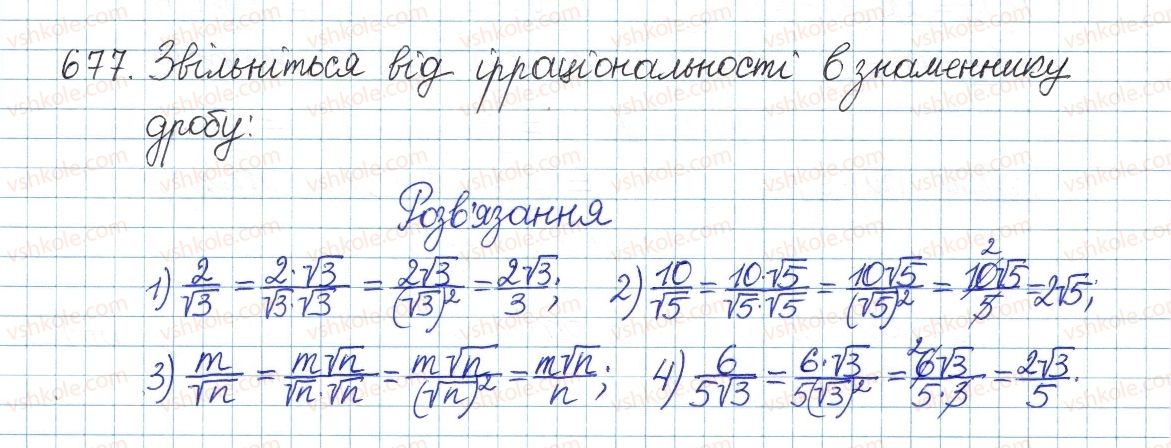 677. Звільніться від ірраціональності в знаменнику
дробу:
Розв'язання
1) 2/√3 = 2·√3/√3·√3 = 2√3/(√3)² = 2√3/3; 2) 10/√5 = 10·√5/√5·√5 = 10√5/(√5)² = 10√5/5 = 2√5;
3) m/√n = m√n/√n·√n = m√n/(√n)² = m√n/n; 4) 6/5√3 = 6·√3/5(√3)² = 6√3/5·3 = 2√3/5.